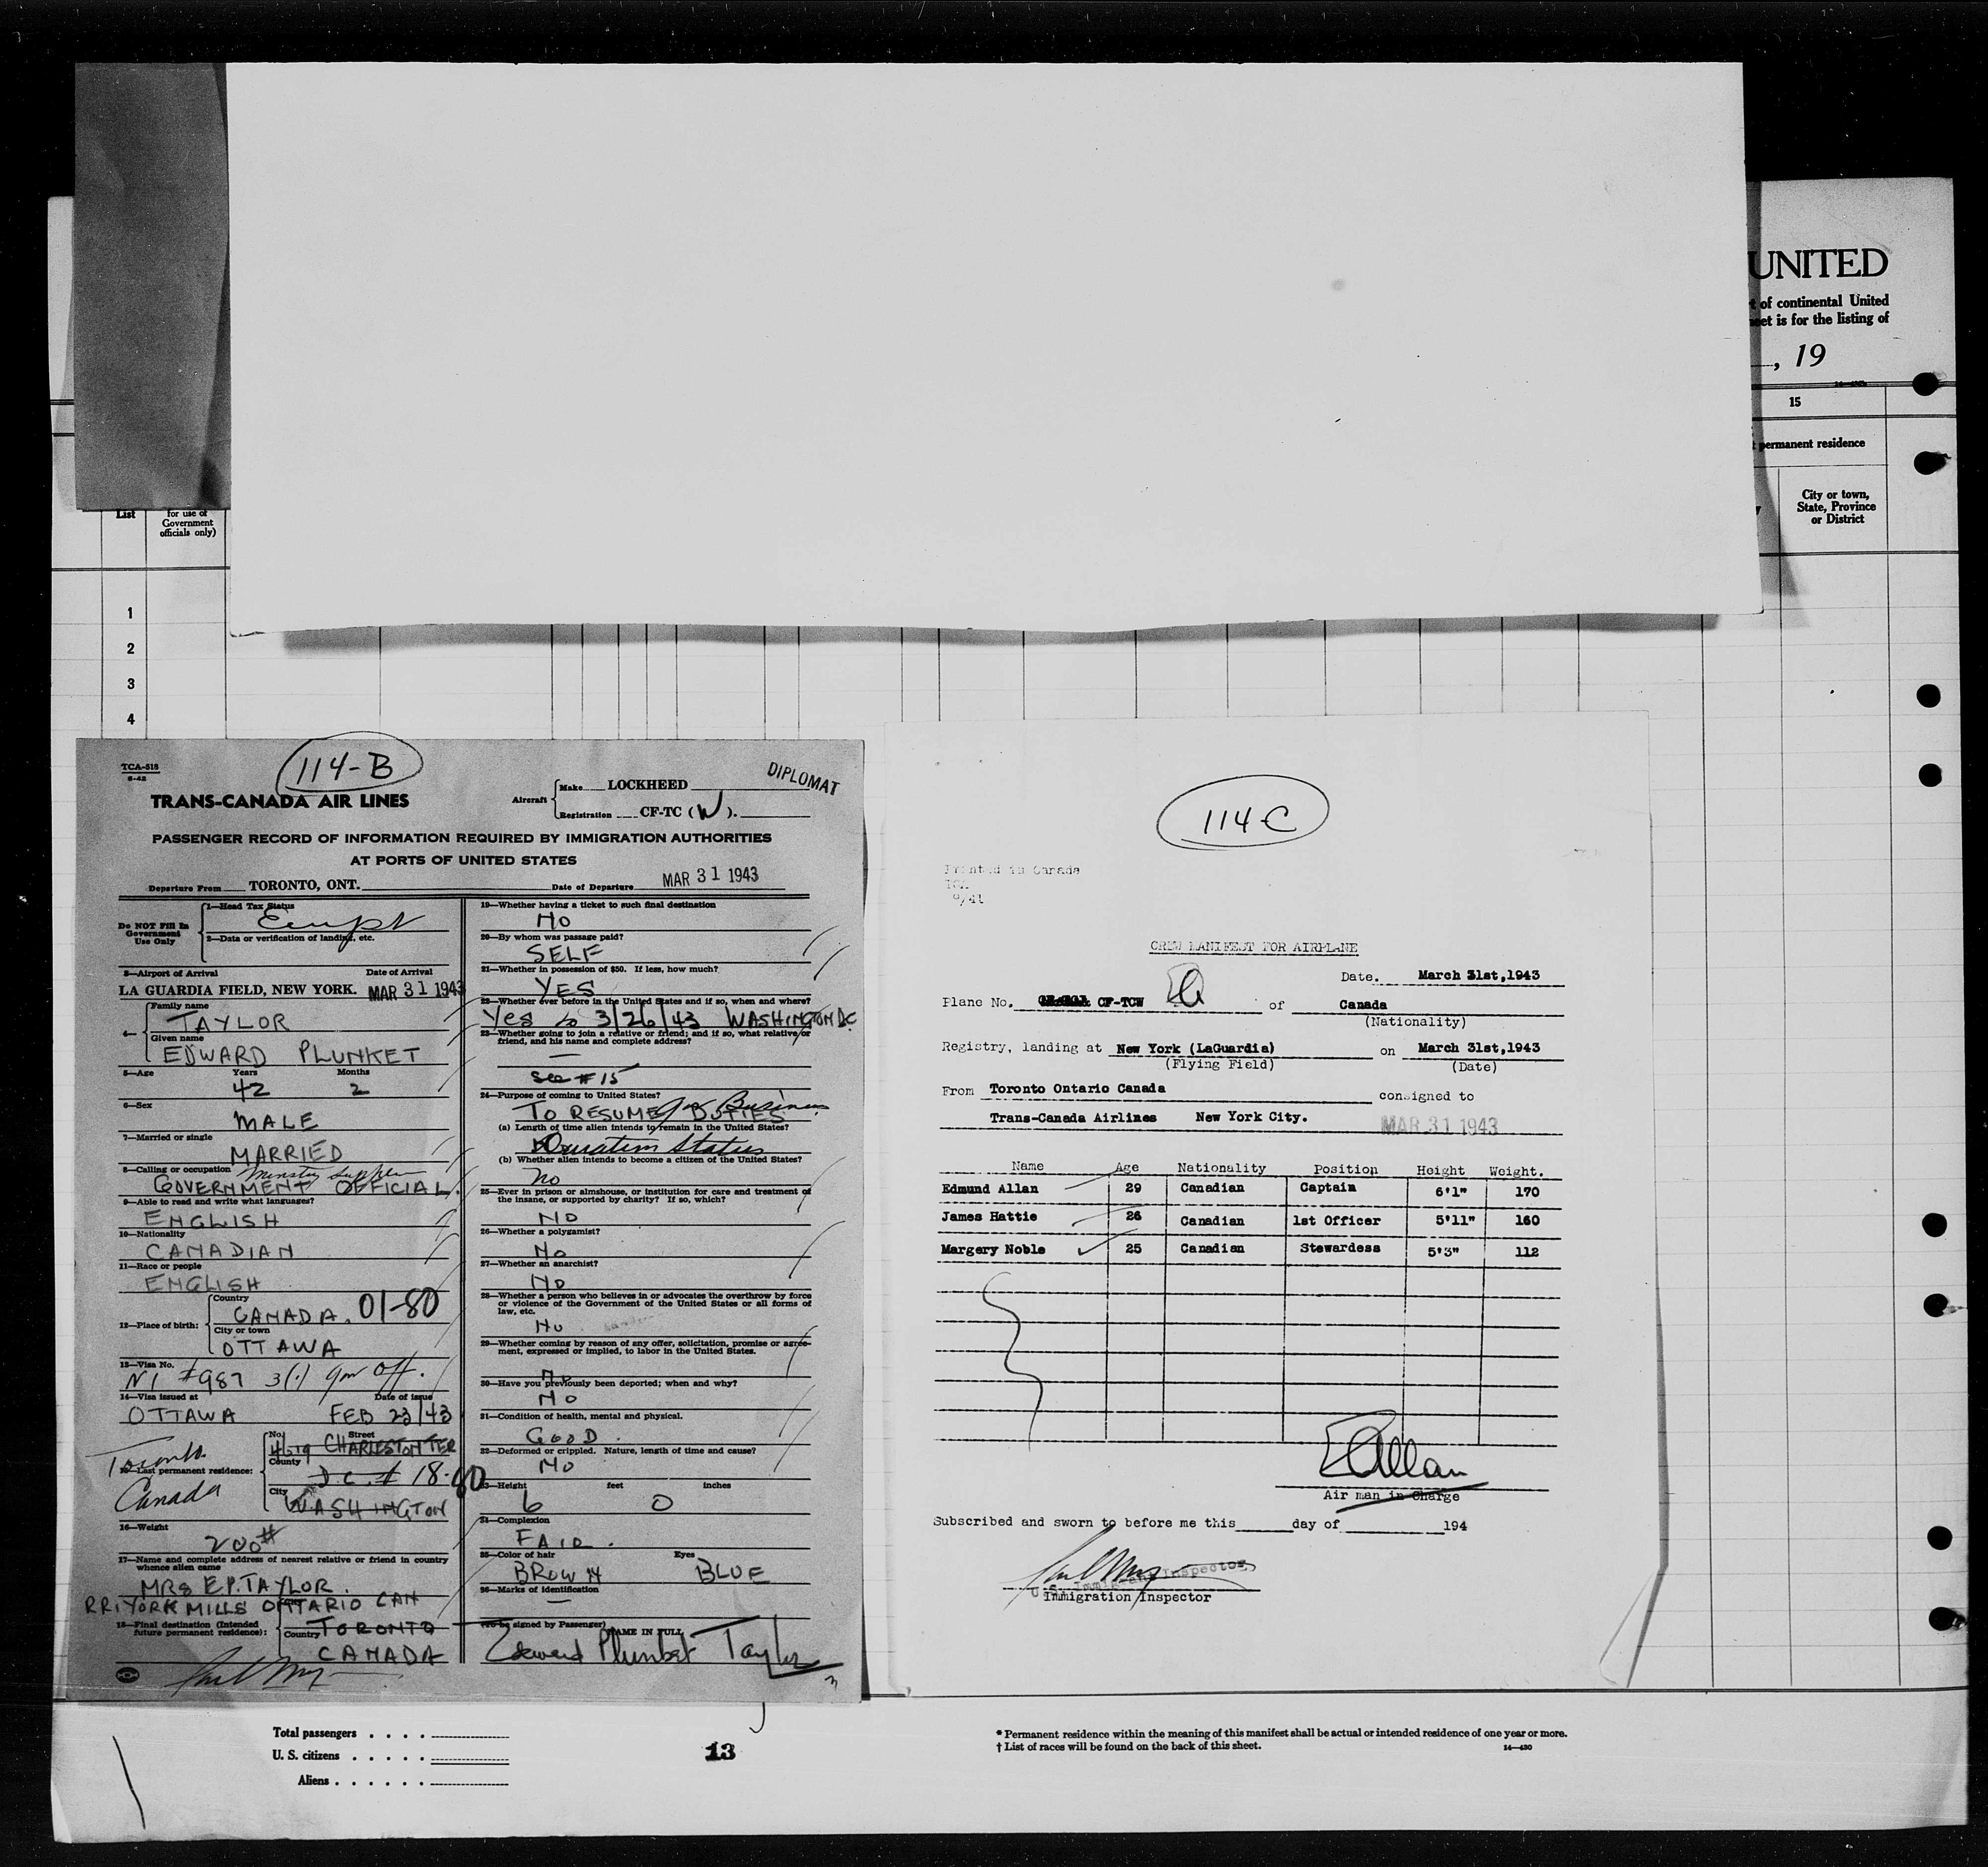 UNITED
t of continental United
eet is for the listing of
, 19
15
permanent residence
City or town,
State, Province
or District
List
for use of
Government
officials only)
1
2
3
4
114-B
TCA-518
6-42
TRANS-CANADA AIR LINES
DIPLOMAT
Aircraft
Make LOCKHEED
Registration CF-TC (W).
PASSENGER RECORD OF INFORMATION REQUIRED BY IMMIGRATION AUTHORITIES
AT PORTS OF UNITED STATES
Departure From TORONTO, ONT. Date of Departure MAR 31 1943
Do NOT Fill In
Government
Use Only
1—Head Tax Status
2—Data or verification of landing, etc.
3—Airport of Arrival Date of Arrival
LA GUARDIA FIELD, NEW YORK. MAR 31 1943
4—
Family name
TAYLOR
Given name
EDWARD PLUNKET
5—Age Years Months
42 2
6—Sex
MALE
7—Married or single
MARRIED
8—Calling or occupation
GOVERNMENT OFFICIAL
9—Able to read and write what languages?
ENGLISH
10—Nationality
CANADIAN
11—Race or people
ENGLISH
12—Place of birth:
Country
CANADA. 01-80
City or town
OTTAWA
13—Visa No.
#987 3(1) Gov Off.
14—Visa issued at Date of issue
OTTAWA FEB 23/43
15—Last permanent residence:
Toronto
Canada
No. Street
CHARLESTON TER
County
D.C. 18-80
City
WASHINGTON
16—Weight
200#
17—Name and complete address of nearest relative or friend in country
whence alien came
MRS E.P. TAYLOR.
RR1 YORK MILLS ONTARIO CAN
18—Final destination (Intended
future permanent residence):
TORONTO
Country
CANADA
19—Whether having a ticket to such final destination
NO
20—By whom was passage paid?
SELF
21—Whether in possession of $50. If less, how much?
YES
22—Whether ever before in the United States and if so, when and where?
Yes to 3/26/43 WASHINGTON DC
23—Whether going to join a relative or friend; and if so, what relative or
friend, and his name and complete address?
See #15
24—Purpose of coming to United States?
TO RESUME DUTIES Business
(a) Length of time alien intends to remain in the United States?
Duration Status
(b) Whether alien intends to become a citizen of the United States?
No
25—Ever in prison or almshouse, or institution for care and treatment of
the insane, or supported by charity? If so, which?
NO
26—Whether a polygamist?
No
27—Whether an anarchist?
NO
28—Whether a person who believes in or advocates the overthrow by force
or violence of the Government of the United States or all forms of
law, etc.
No
29—Whether coming by reason of any offer, solicitation, promise or agree-
ment, expressed or implied, to labor in the United States.
No
30—Have you previously been deported; when and why?
NO
31—Condition of health, mental and physical.
GOOD.
32—Deformed or crippled. Nature, length of time and cause?
NO
33—Height feet inches
6 0
34—Complexion
FAIR.
35—Color of hair Eyes
BROWN BLUE
36—Marks of identification
—
(To be signed by Passenger) NAME IN FULL
Edward Plunket Taylor
114-C
Printed in Canada
TCA
CREW MANIFEST FOR AIRPLANE
Date. March 31st,1943
Plane No. CF-TCW of Canada
(Nationality)
Registry, landing at New York (LaGuardia) on March 31st,1943
(Flying Field) (Date)
From Toronto Ontario Canada consigned to
Trans-Canada Airlines New York City. MAR 31 1943
Name Age Nationality Position Height Weight.
Edmund Allan 29 Canadian Captain 6'1" 170
James Hattie 26 Canadian 1st Officer 5'11" 160
Margery Noble 25 Canadian Stewardess 5'3" 112
E Allan
Air man in Charge
Subscribed and sworn to before me this day of 194
U.S. Immigrant Inspector
Immigration Inspector
Total passengers . . . .
U. S. citizens . . . . .
Aliens . . . . . .
13
* Permanent residence within the meaning of this manifest shall be actual or intended residence of one year or more.
† List of races will be found on the back of this sheet.
14—430